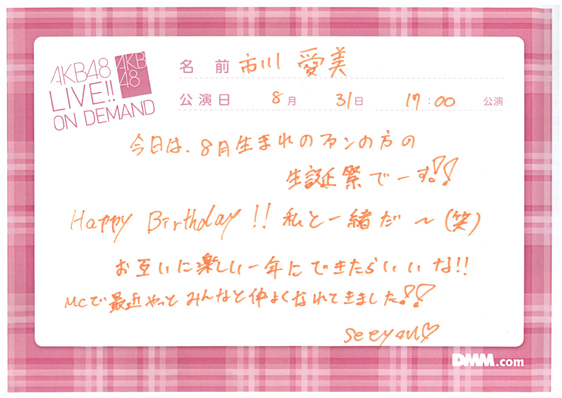 AKB48
LIVE!!
ON DEMAND
AKB
48
名 前 市川 愛美
公演日 8月 31日 17:00 公演
今日は、8月生まれのファンの方の
生誕祭でーす!!
Happy Birthday!! 私と一緒だ〜(笑)
お互いに楽しい一年にできたらいいな!!
MCで最近やっとみんなと仲よくなれてきました!!
see you♡
DMM.com